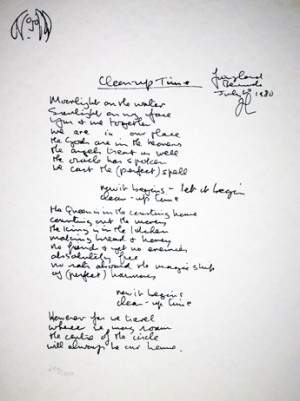 Cleanup Time
Fairyland
Bermuda
July 1980
JL
Moonlight on the water
Sunlight on my face
You & me together
we are in our place
the Gods are in the heavens
the angels treat us well
the oracle has spoken
we cast the (perfect) spell
now it begins - let it begin
clean-up time
the Queen is in the counting house
counting out the money
the King is in the kitchen
making bread & honey
no friends & yet no enemies
absolutely free
no rats aboard the magic ship
of (perfect) harmony
now it begins
clean-up time
However far we travel
wherever we may roam
the centre of the circle
will always be our home.